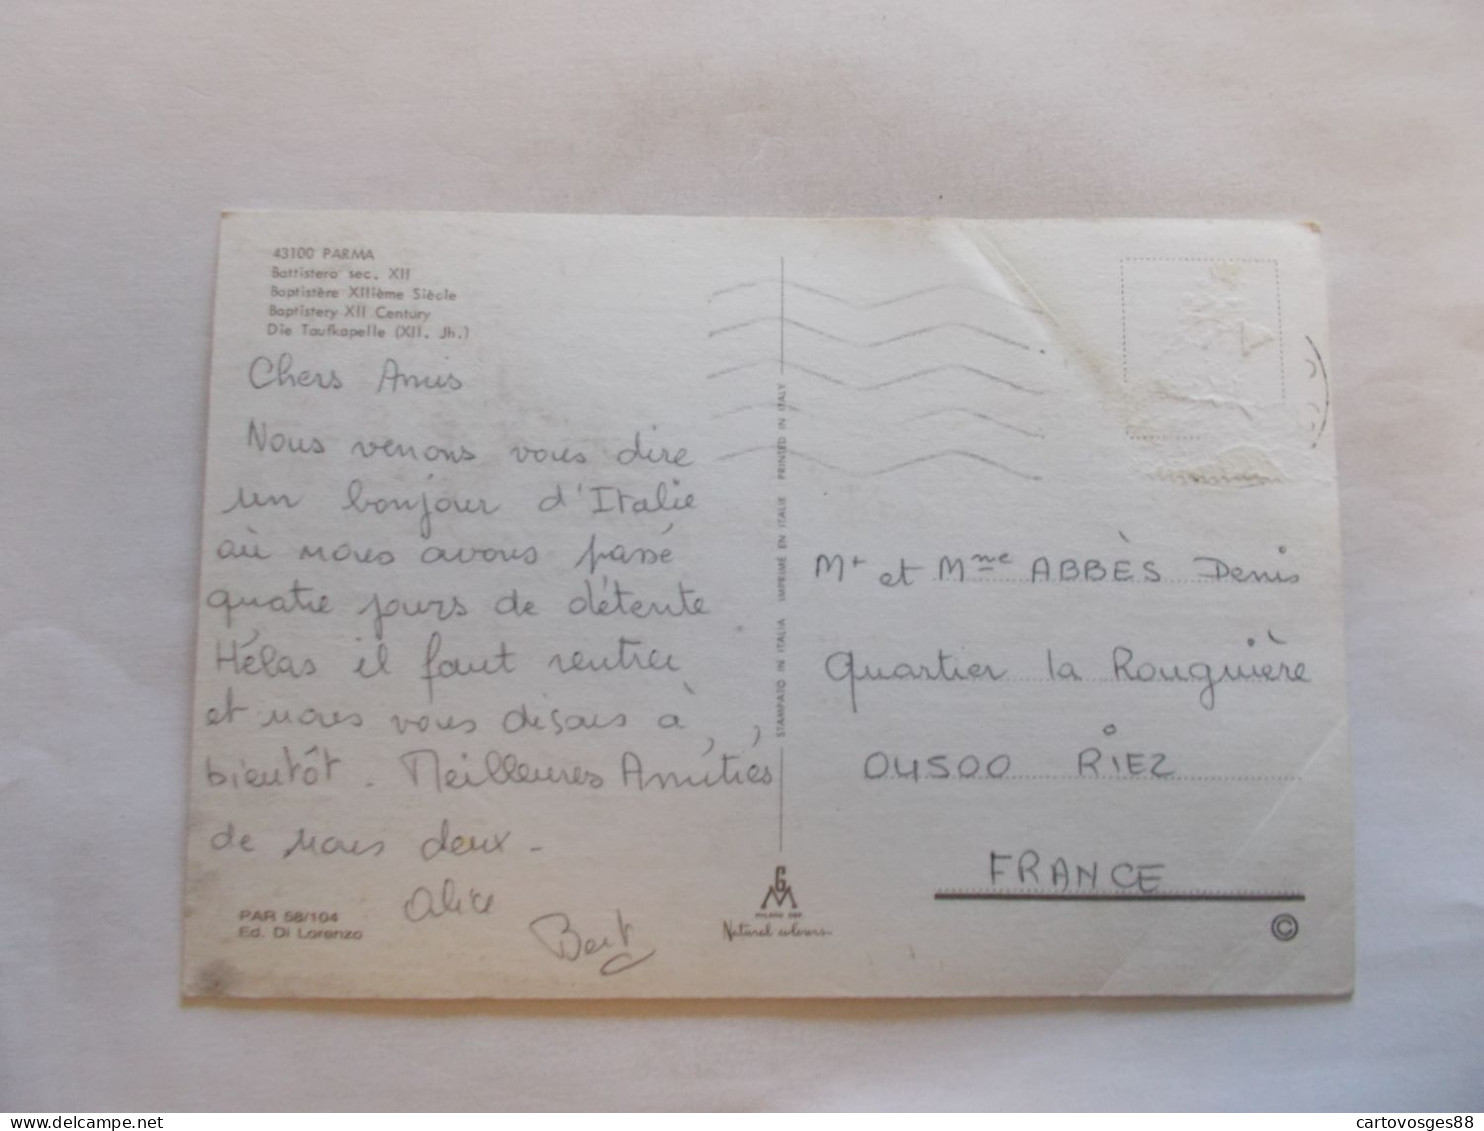 43100 PARMA
Battistero sec. XII
Baptistère XIIième Siècle
Baptistery XII Century
Die Taufkapelle (XII. Jh.)
Chers Amis
Nous venons vous dire
un bonjour d'Italie
où nous avons passé
quatre jours de détente
Hélas il faut rentrer
et nous vous disons à
bientôt. Meilleures Amitiés
de nous deux -
Alice
Bert
PAR 58/104
Ed. Di Lorenzo
STAMPATO IN ITALIA IMPRIMÉ EN ITALIE PRINTED IN ITALY
Natural colours
Mr et Mme ABBÈS Denis
Quartier la Rouguière
04500 RIEZ
FRANCE
©
cartovosges88